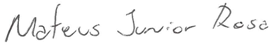 Mateus Junior Rosa